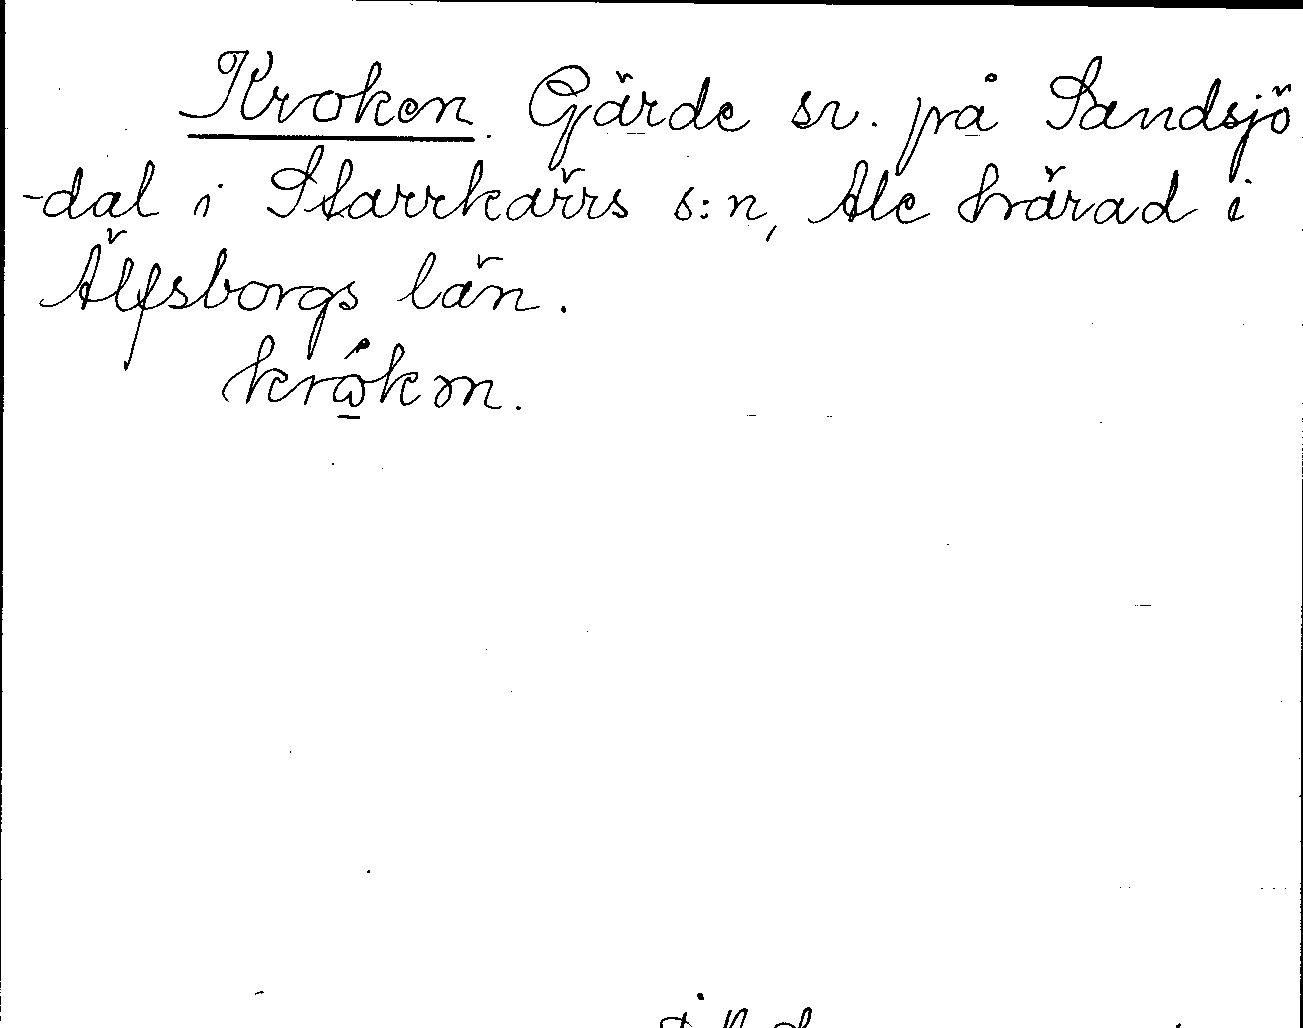 Kroken. Gärde sr. på Sandsjö
-dal i Starrkärrs s:n, Ale härad i
Älfsborgs län.